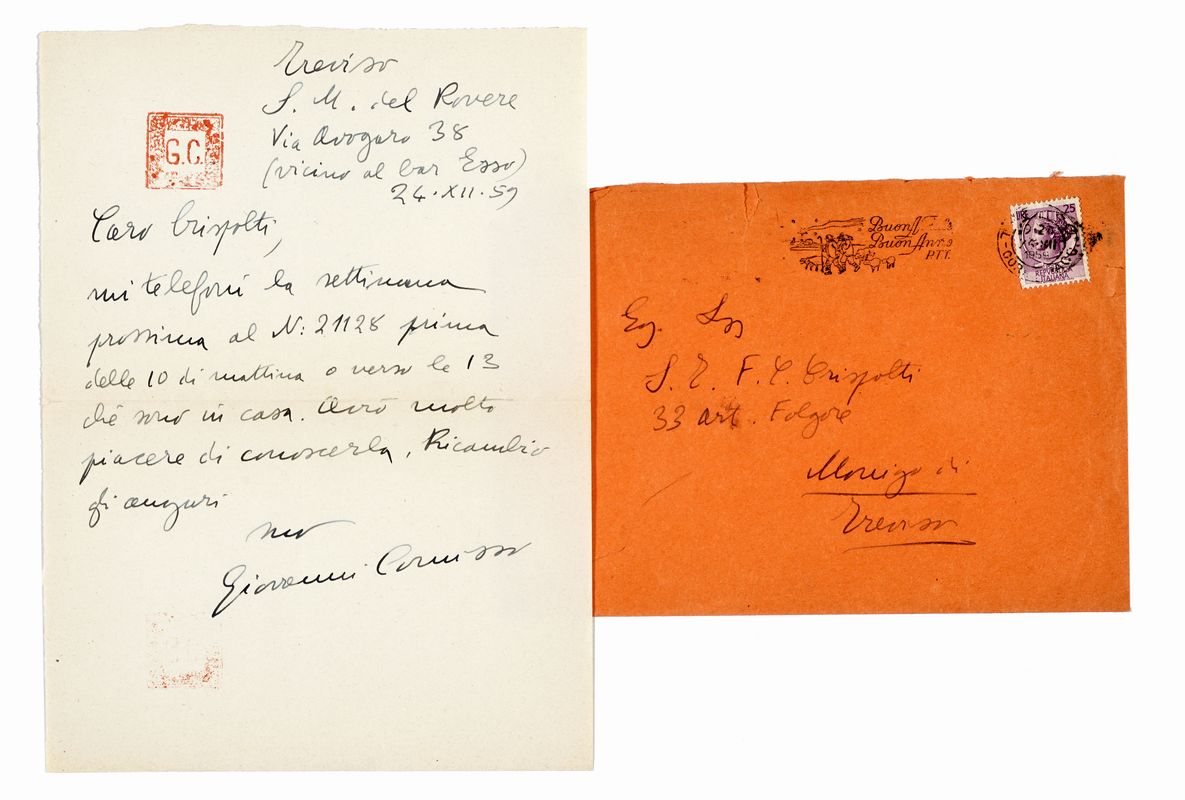 Treviso
S. M. del Rovere
G.C.
Via Avogaro 38
(vicino al bar Esso)
24.XII.59
Caro Crispolti,
mi telefoni la settimana
prossima al N: 21128 prima
delle 10 di mattina o verso le 13
chè sono in casa. Avrò molto
piacere di conoscerla. Ricambio
gli auguri
suo
Giovanni Comisso
Buon
Buon Anno
PTT.
25
1959
REPUBBLICA
ITALIANA
Eg.
S. T. F. C. Crispolti
33 art. Folgore
Monigo di
Treviso